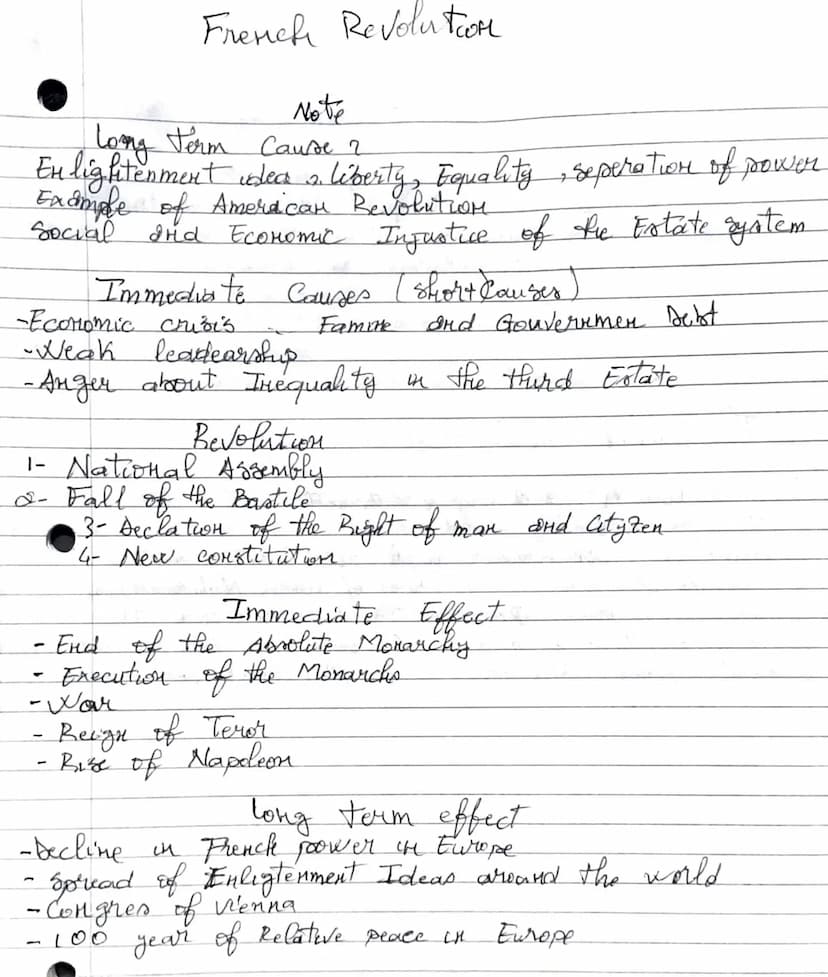 French Revolution
Note
Long Term Cause?
Enlightenment idea : liberty, Equality, seperation of power
Example of American Revolution
Social and Economic Injustice of the Estate system
Immediate Causes (short Causes)
-Economic crisis .. Famine and Gouvernmen Debt
-Weak leadearship
-Anger about Inequality in the third Estate
Revolution
1- National Assembly
2- Fall of the Bastile
3- Declation of the Right of man and Cityzen
4- New constitution
Immediate Effect
- End of the Absolute Monarchy
- Execution of the Monarchs
- War
- Reign of Teror
- Rise of Napoleon
Long term effect
-Decline in French power in Europe
- Spread of Enligtenment Ideas around the world
-Congres of Vienna
-100 year of Relative peace in Europe